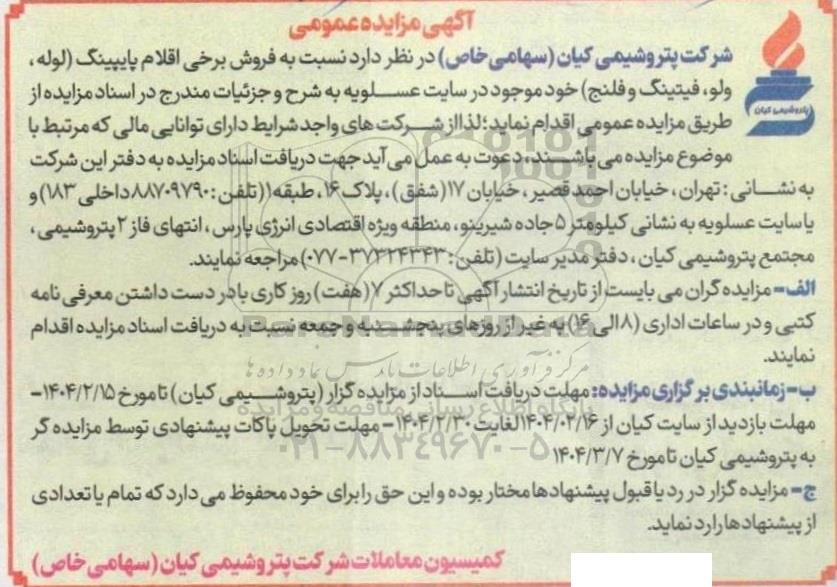 آگهی مزایده عمومی
شرکت پتروشیمی کیان (سهامی خاص) در نظر دارد نسبت به فروش برخی اقلام پایپینگ (لوله،
ولو، فیتینگ و فلنج) خود موجود در سایت عسلویه به شرح و جزئیات مندرج در اسناد مزایده از
طریق مزایده عمومی اقدام نماید؛ لذا از شرکت های واجد شرایط دارای توانایی مالی که مرتبط با
موضوع مزایده می باشند، دعوت به عمل می آید جهت دریافت اسناد مزایده به دفتر این شرکت
به نشانی: تهران، خیابان احمد قصیر، خیابان ۱۷ (شفق)، پلاک ۱۶، طبقه ۱ (تلفن: ۸۸۷۰۹۷۹۰ داخلی ۱۸۳) و
یا سایت عسلویه به نشانی کیلومتر ۵ جاده شیرینو، منطقه ویژه اقتصادی انرژی پارس، انتهای فاز ۲ پتروشیمی،
مجتمع پتروشیمی کیان، دفتر مدیر سایت (تلفن: ۳۷۳۲۴۳۴۳-۰۷۷) مراجعه نمایند.
الف- مزایده گران می بایست از تاریخ انتشار آگهی تا حداکثر ۷ (هفت) روز کاری با در دست داشتن معرفی نامه
کتبی و در ساعات اداری (۸ الی ۱۶) به غیر از روزهای پنجشنبه و جمعه نسبت به دریافت اسناد مزایده اقدام
نمایند.
ب- زمانبندی برگزاری مزایده: مهلت دریافت اسناد از مزایده گزار (پتروشیمی کیان) تا مورخ ۱۴۰۴/۲/۱۵-
مهلت بازدید از سایت کیان از ۱۴۰۴/۰۲/۱۶ لغایت ۱۴۰۴/۲/۳۰- مهلت تحویل پاکات پیشنهادی توسط مزایده گر
به پتروشیمی کیان تا مورخ ۱۴۰۴/۳/۷
ج- مزایده گزار در رد یا قبول پیشنهادها مختار بوده و این حق را برای خود محفوظ می دارد که تمام یا تعدادی
از پیشنهادها را رد نماید.
کمیسیون معاملات شرکت پتروشیمی کیان (سهامی خاص)
پتروشیمی کیان
ParsNamadData
مرکز فرآوری اطلاعات پارس نماد داده ها
پایگاه اطلاع رسانی مناقصه و مزایده
۰۲۱-۸۸۳۴۹۶۷۰-۵